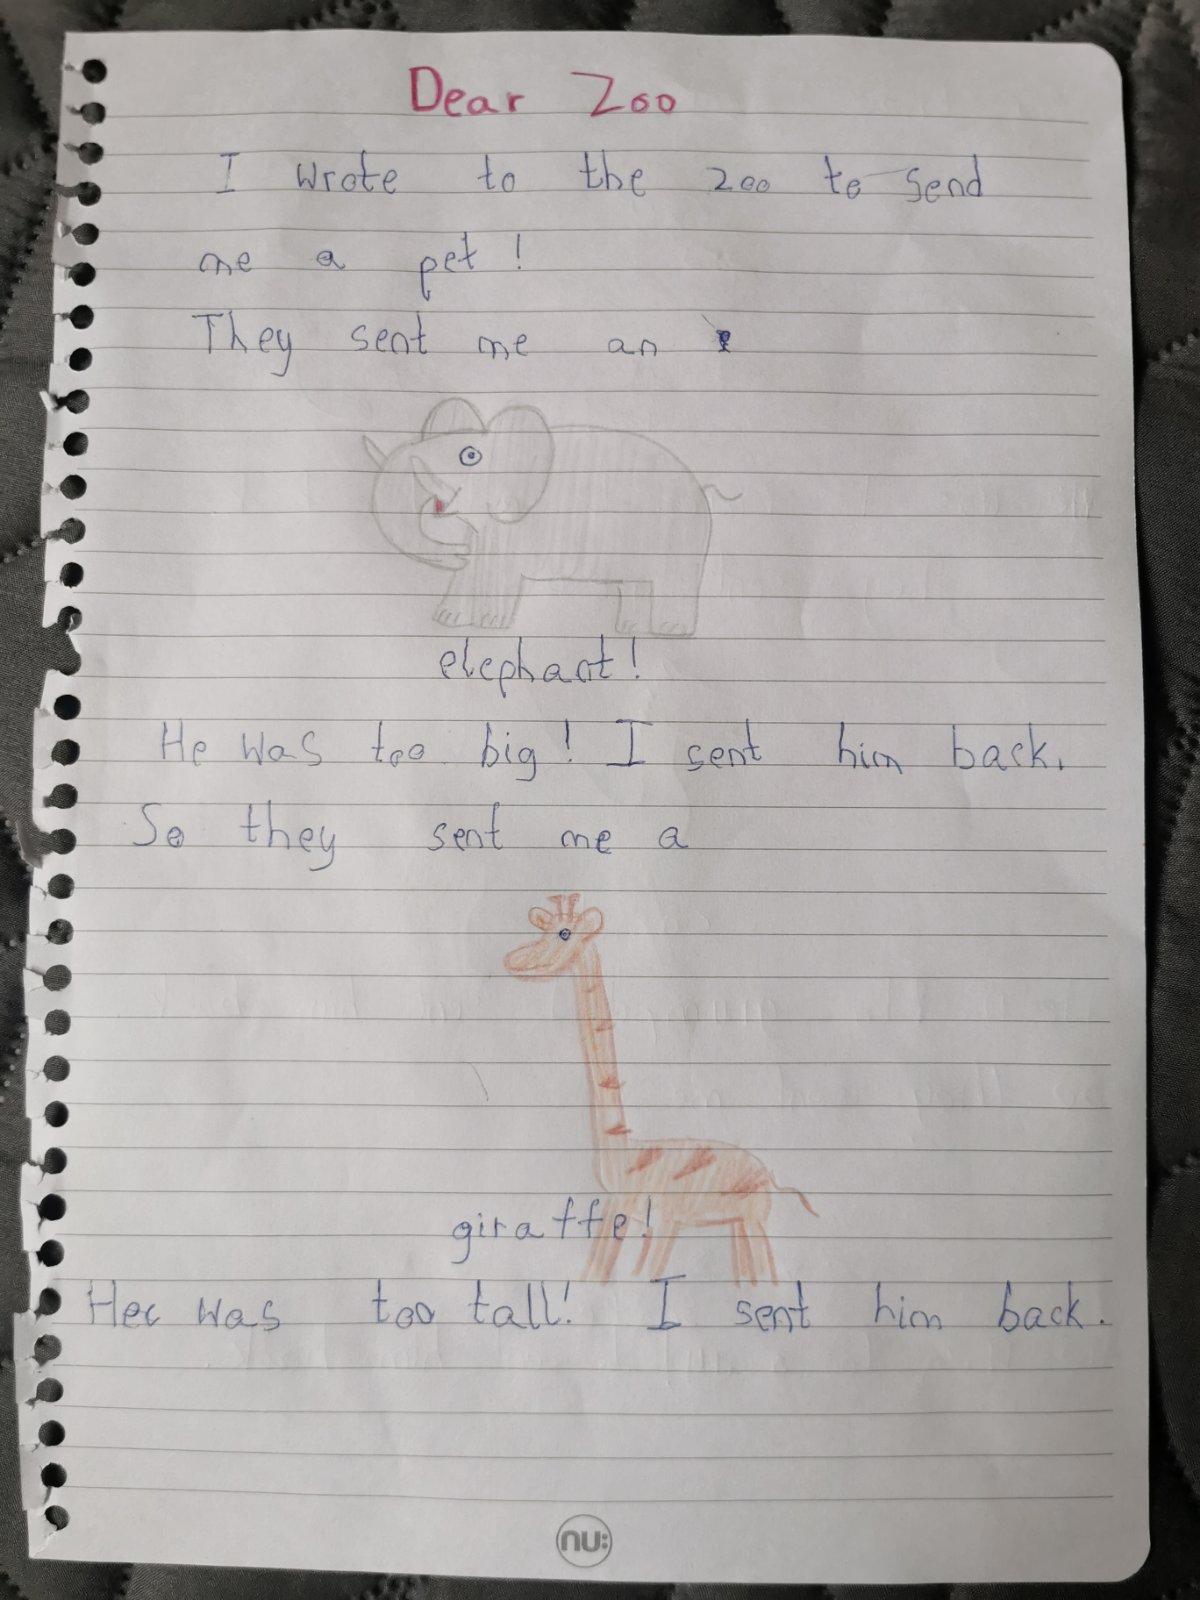 Dear Zoo
I wrote to the zoo to send
me a pet !
They sent me an
elephant!
He was too big! I sent him back.
So they sent me a
giraffe!
Hec was too tall! I sent him back.
nu: